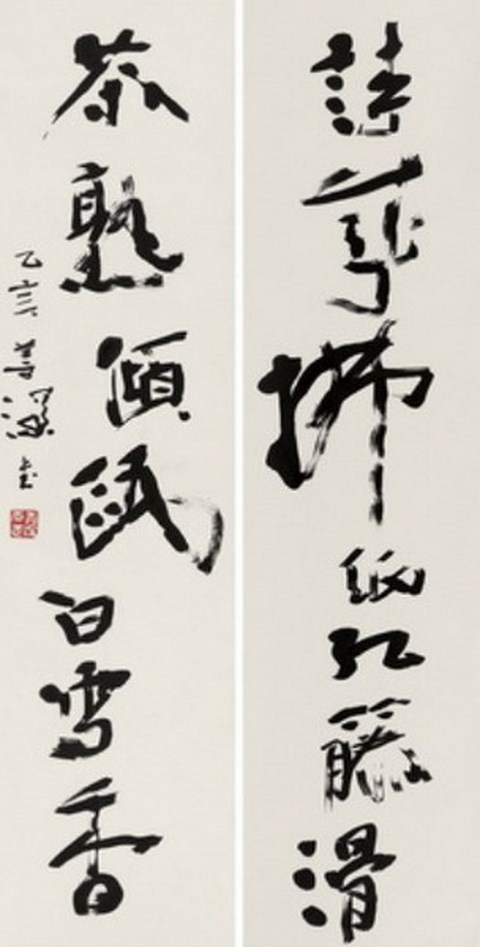 詩成拂紙紅籐滑
茶熟傾甌白雪香
乙亥善深書